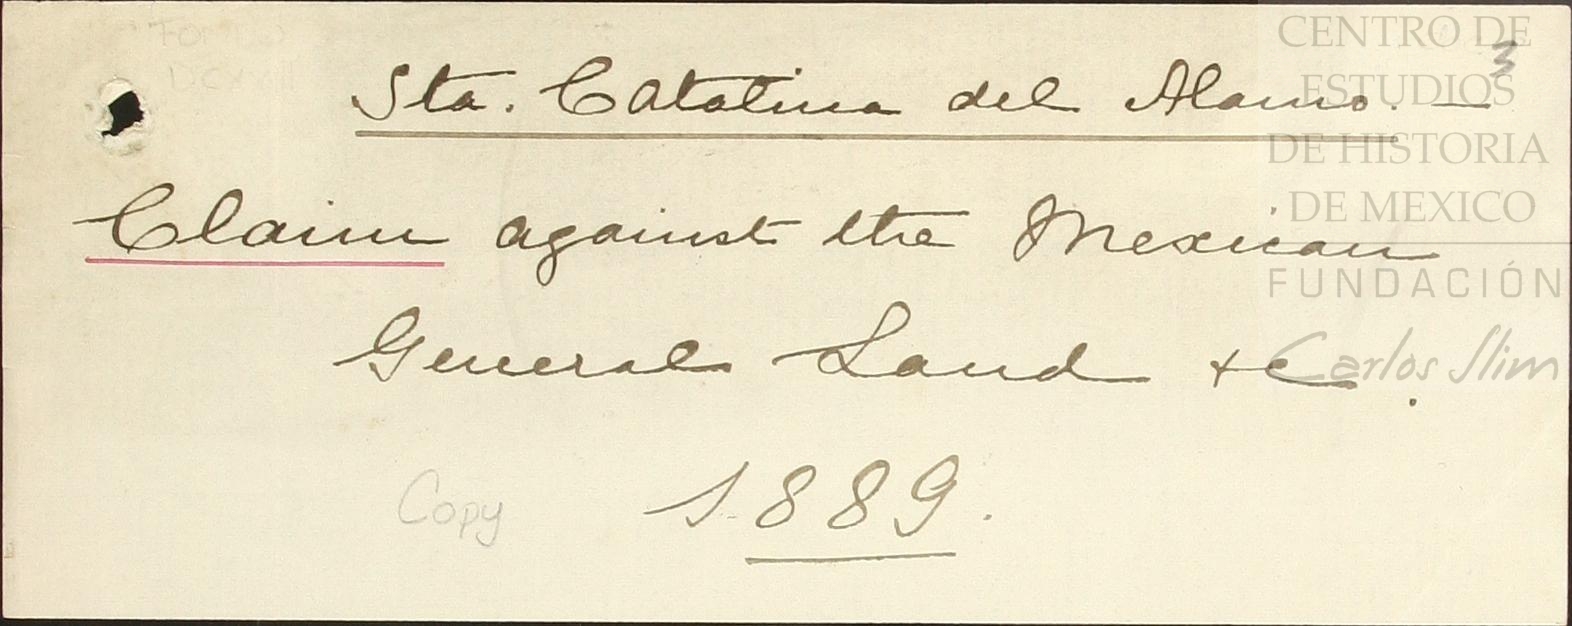 FONDO
DCXXIII
3
Sta. Catalina del Alamo. —
Claim against the Mexican
General Land + C.
Copy
1889.
CENTRO DE
ESTUDIOS
DE HISTORIA
DE MEXICO
FUNDACIÓN
Carlos Slim